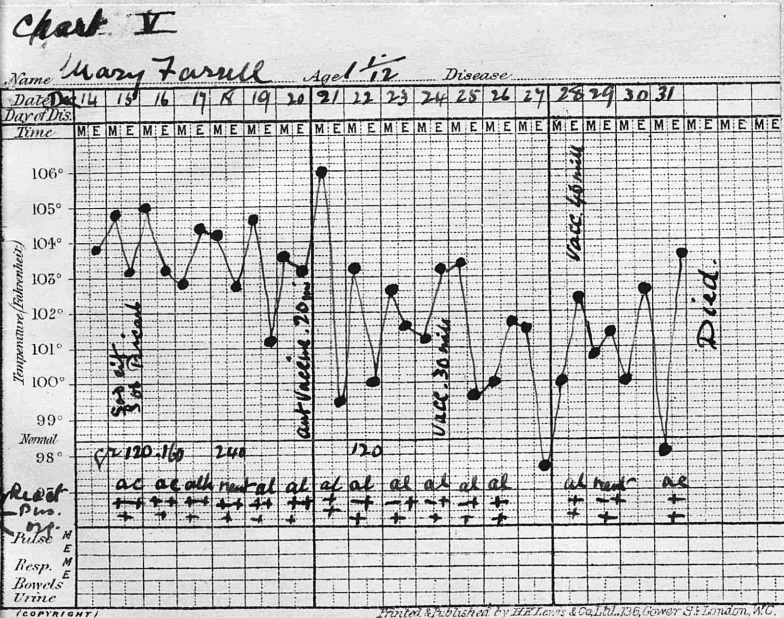 Chart V
Name Mary Farrell Age 1 1/12 Disease
Date Dec 14 15 16 17 18 19 20 21 22 23 24 25 26 27 28 29 30 31
Day of Dis.
Time M E M E M E M E M E M E M E M E M E M E M E M E M E M E M E M E M E M E M E M E M E
Temperature (Fahrenheit)
106°
105°
104°
103°
102°
101°
100°
99°
Normal
98°
Sod cit
aut Vaccine. 20 mill
Vacc. 30 mill
Vacc 40 mill
Died.
gr 120 160 240 120
React ac ac alk neut al al al al al al al al al neut ac
Pus. ++ ++ ++ ++ ++
org. + + + + +
Pulse M
E
Resp. M
E
Bowels
Urine
(COPYRIGHT)
Printed & Published by H.K. Lewis & Co. Ltd., 136, Gower St. London, W.C.